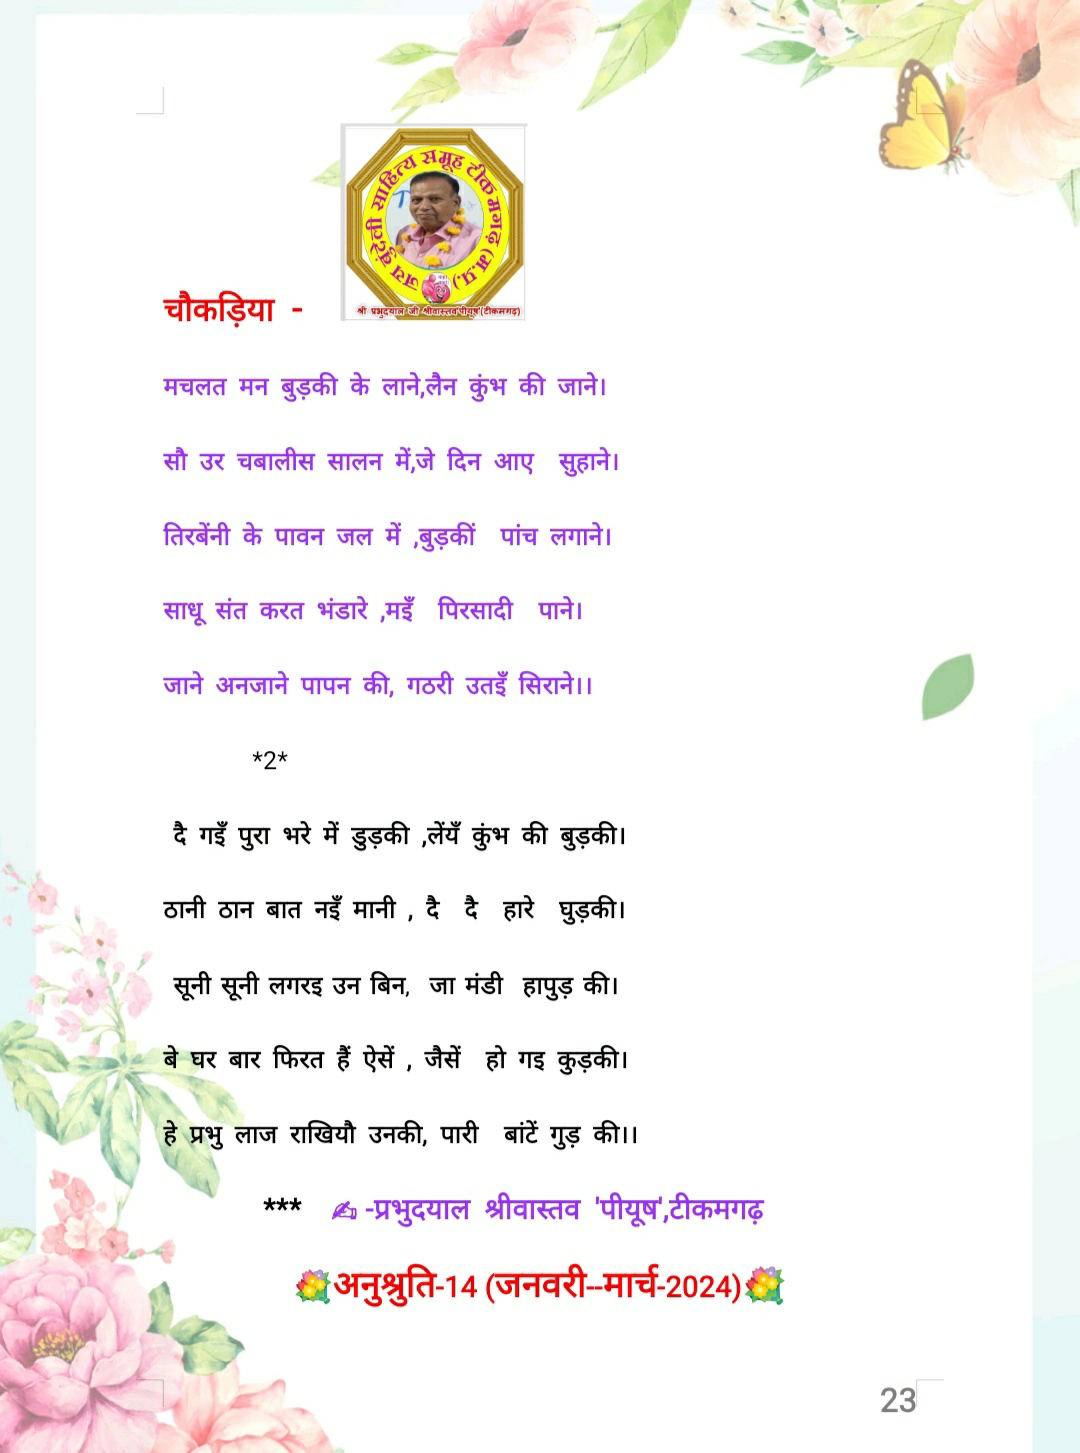 जय बुंदेली साहित्य समूह टीकमगढ़ (म.प्र.)
श्री प्रभुदयाल जी श्रीवास्तव'पीयूष'(टीकमगढ़)
चौकड़िया -
मचलत मन बुड़की के लाने,लैन कुंभ की जाने।
सौ उर चबालीस सालन में,जे दिन आए सुहाने।
तिरबेंनी के पावन जल में ,बुड़कीं पांच लगाने।
साधू संत करत भंडारे ,मइँ पिरसादी पाने।
जाने अनजाने पापन की, गठरी उतइँ सिराने।।
*2*
दै गइँ पुरा भरे में डुड़की ,लेंयँ कुंभ की बुड़की।
ठानी ठान बात नइँ मानी , दै दै हारे घुड़की।
सूनी सूनी लगरइ उन बिन, जा मंडी हापुड़ की।
बे घर बार फिरत हैं ऐसें , जैसें हो गइ कुड़की।
हे प्रभु लाज राखियौ उनकी, पारी बांटें गुड़ की।।
*** ✍️ -प्रभुदयाल श्रीवास्तव 'पीयूष',टीकमगढ़
💐अनुश्रुति-14 (जनवरी--मार्च-2024)💐
23